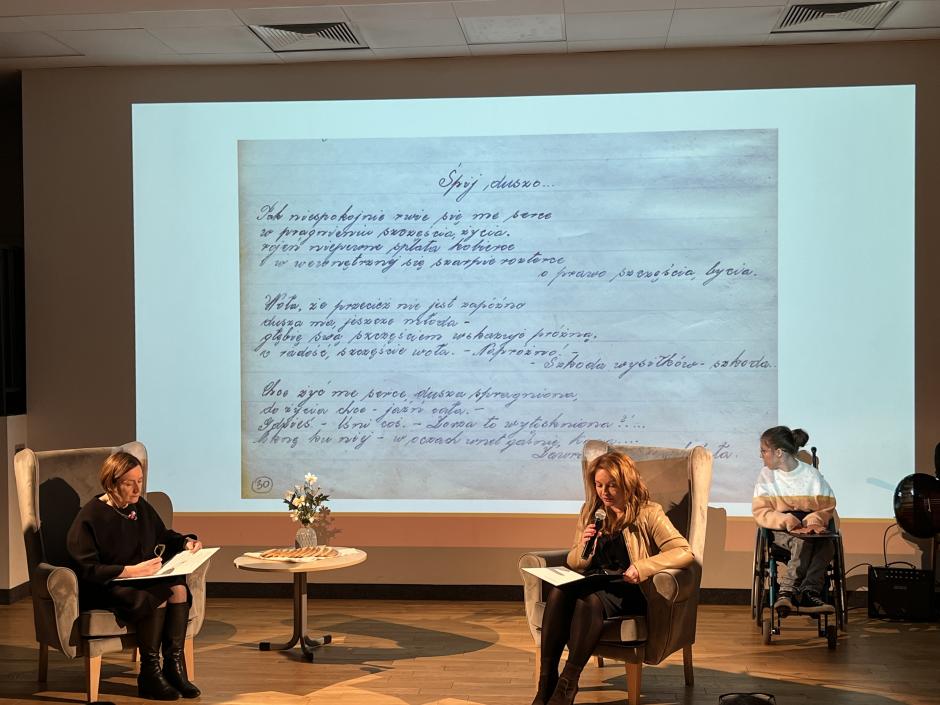 Śpij, duszo...
Jak niespokojnie rwie się me serce
w pragnieniu szczęścia, życia.
rojeń niepewne splata kobierce
w wewnętrznej się szarpie rozterce
o prawo szczęścia, bycia.
Woła, że przecież nie jest zapóźno
dusza ma jeszcze młoda -
głębię swą szczęściem wskazuje próżną,
o radość, szczęście woła. - Napróżno! -
- Szkoda wysiłków - szkoda.
Chce żyć me serce, dusza spragniona,
do życia chce - jaźń cała. -
Gdzieś - lśni coś. - Zorza to wytęskniona?!...
Mknę ku niej - w oczach wnet gaśnie, kona....
30